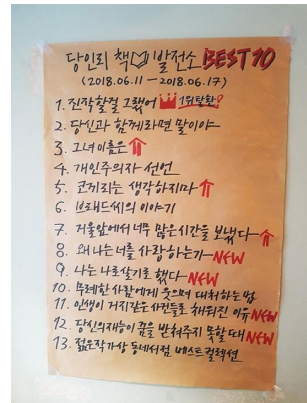 당인리 책 발전소 BEST 10
(2018.06.11 - 2018.06.17)
1. 진작할걸 그랬어 1위탈환?
2. 당신과 함께라면 말이야
3. 그녀이름은
4. 개인주의자 선언
5. 코끼리는 생각하지마
6. 브래드씨의 이야기
7. 거울앞에서 너무 많은 시간을 보냈다
8. 왜 나는 너를 사랑하는가 NEW
9. 나는 나로 살기로 했다 NEW
10. 무례한 사람에게 웃으며 대처하는 법
11. 인생이 거지같은 사건들로 채워진 이유 NEW
12. 당신의 재능이 꿈을 받쳐주지 못할 때 NEW
13. 젊은작가상 동네서점 베스트컬렉션